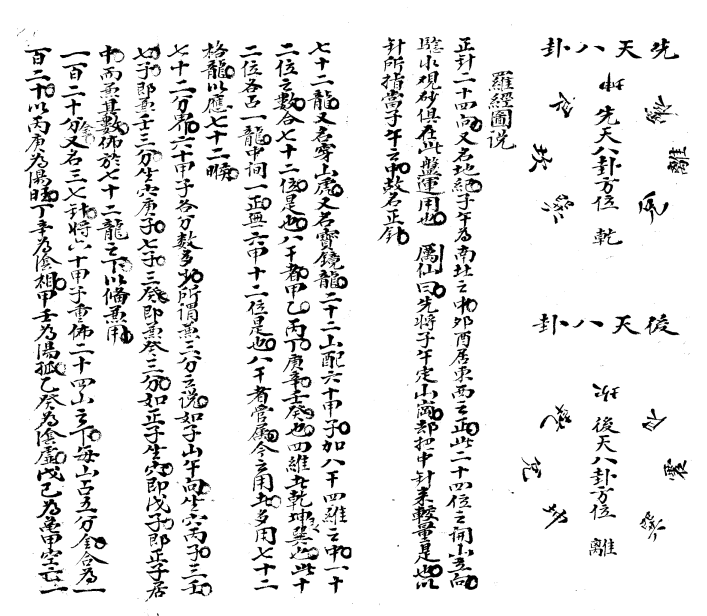 先天八卦
先天八卦方位
乾
離
後天八卦
後天八卦方位
離
震
羅經圖説
正針二十四向又名地紀子午為南北之中夘酉居東西之正此二十四位之開山立向
聽水观砂俱在此盤運用也 厲仙曰先將子午定山崗却把中針来較量是也以
針所指當子午之中故名正針
七十二龍又名穿山虎又名寶鏡龍二十二山配六十甲子加八干四維之中一十
二位之數合七十二位是也八干者甲乙丙丁庚辛壬癸也四維者乾坤艮巽也此十
二位各占一龍中间一正無六甲十二位是也八干者當属今之用者多用七十二
格龍以應七十二𠉀
七十二分界六十甲子各分數多少所謂兼三分之说如子山午向坐穴丙子三壬
七子即兼壬三分坐穴庚子七子三癸即兼癸三分如正子坐穴即戊子即正子居
中而兼其數佈於七十二龍之下以俻兼用
一百二十分又名三七針將六十甲子重佈二十四山之下每山占五分金合為一
百二十以丙庚為陽旺丁辛為陰相甲壬為陽孤乙癸為陰虚戊己為龜甲空亡一